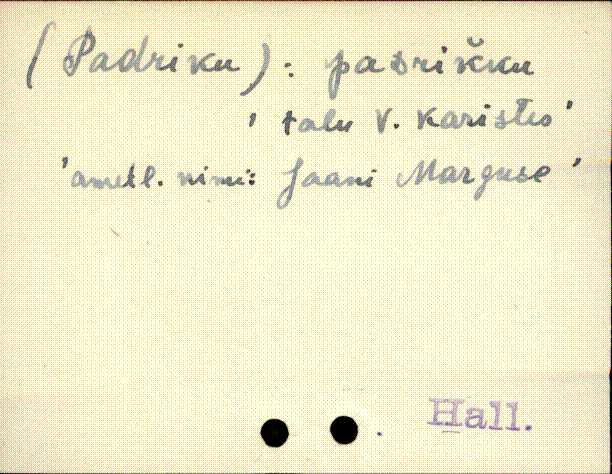 (Padriku): padrikku
' talu V. Karistes'
'ametl. nimi: Jaani Marguse'
Hall.